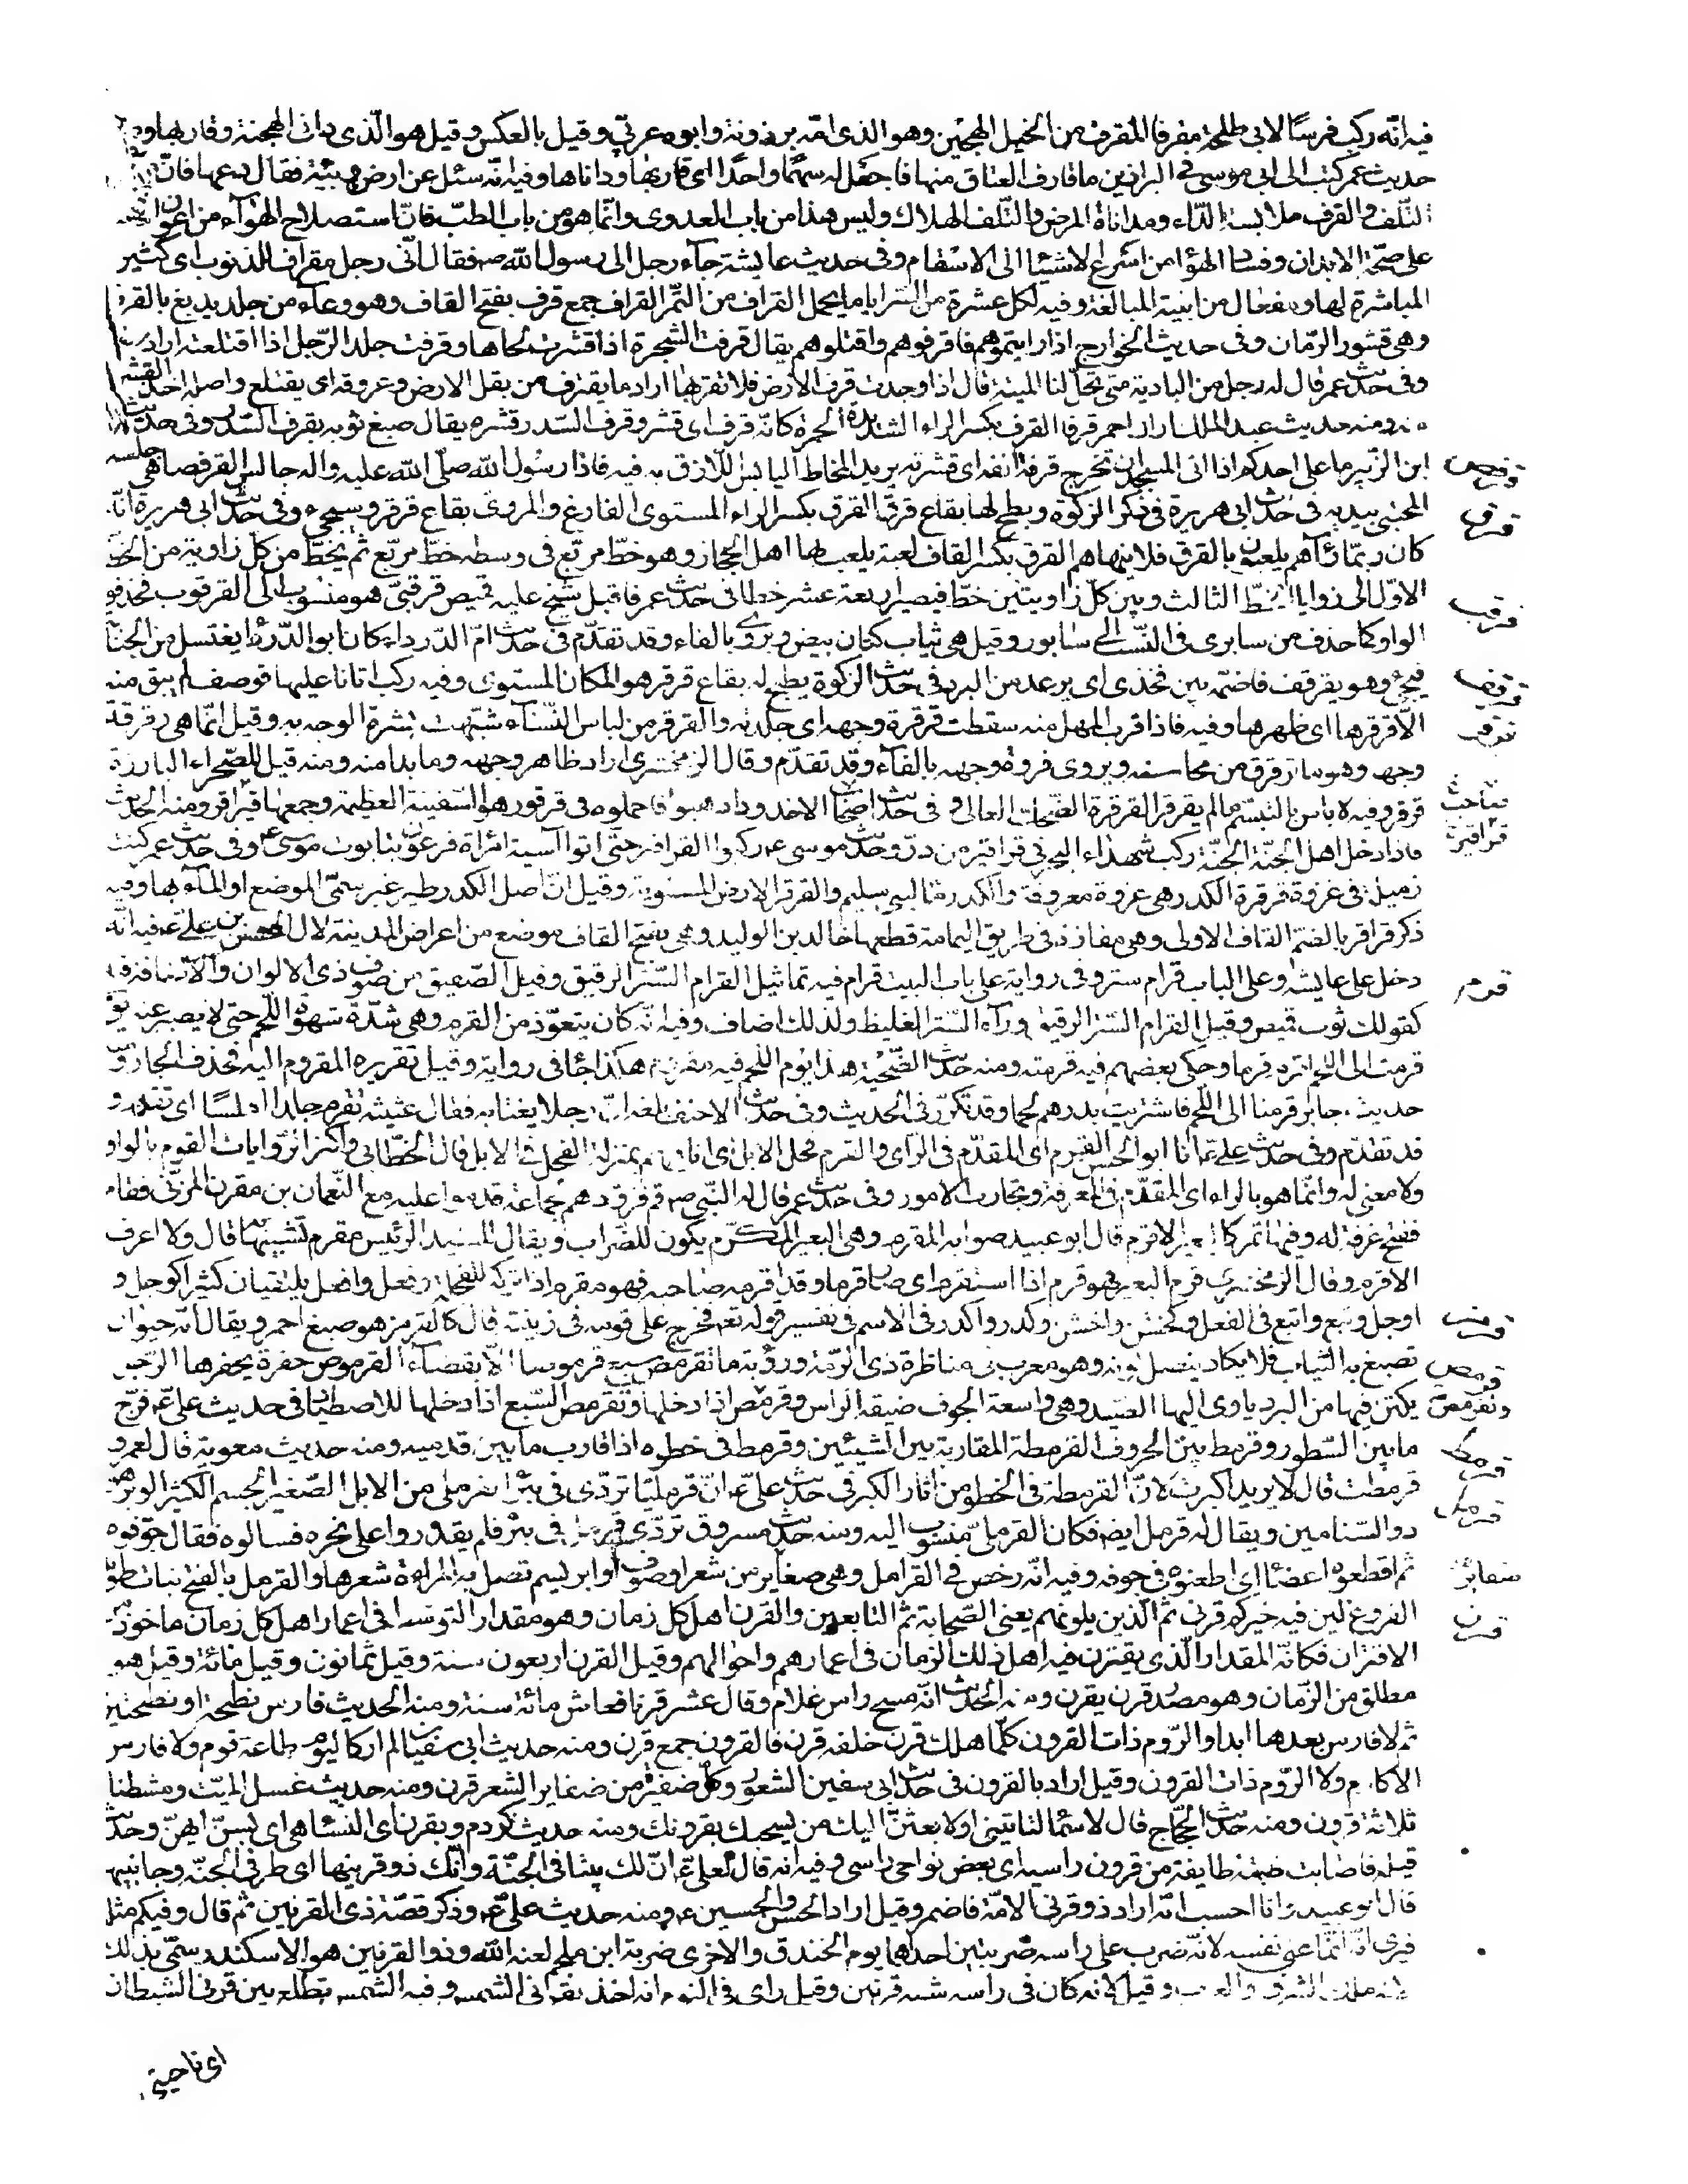 فيه انّه ركب فرسًا لابى طلحة مقرفا المقرف من الخيل الهجين وهو الذى امّه برذونة وابوه عربّى وقيل بالعكس وقيل هو الّذى دانى الهجنة وقاربها ومنه
حديث عمر كتب الى ابى موسى فى البراذين ما قارف العتاق منها فاجعل له سهمًا واحدًا اى قاربها وداناها وفيه انّه سئل عن ارض وبيئة فقال دعها فانّ من القرف
التّلف القرف ملابسة الدّاء ومداناة المرض والتّلف الهلاك وليس هذا من باب العدوى وانّما هو من باب الطبّ فانّ استصلاح الهوآء من اعون الاشياء
على صحّة الابدان وفساد الهوٓا من اسرع الاشيٓا الى الاسقام وفى حديث عايشة جآء رجل الى رسول الله صه فقال انّى رجل مقراف للذنوب اى كثير
المباشرة لها ومفعال من ابنية المبالغة وفيه لكل عشرة من السّرايا ما يحمل القراف من التّمر القراف جمع قرف بفتح القاف وهو وعآء من جلد يدبغ بالقرفة
وهى قشور الرّمّان وفى حديث الخوارج اذا رايتموهم فاقرفوهم واقتلوهم يقال قرفت الشّجرة اذا قشرت لحاها وقرفت جلد الرّجل اذا اقتلعته اراد استاصلوهم
وفى حديث عمر قال له رجل من البادية متى تحلّ لنا الميتة قال اذا وجدت قرف الارض فلا تقربها اراد ما يقترف من بقل الارض وعروقه اى يقتلع واصله اخذ القشر
منه ومنه حديث عبد الملك اراك احمر قرفا القرف بكسر الراء الشديد الحمرة كانّه قرف اى قشر وقرف السّدر قشره يقال صبغ ثوبه بقرف السّدر وفى حديث
ابن الزّبير ما على احدكم اذا اتى المسجد ان يخرج قرفة انفه اى قشرته يريد المخاط اليابس اللّازق به فيه فاذا رسول الله صلّى الله عليه واله جالس القرفصا هى جلسه
المحتبى بيديه فى حديث ابى هريرة فى ذكر الزّكوة وبطح لها بقاع قرق القرق بكسر الراء المستوى الفارغ والمروى بقاع قرقر وسيجىء وفى حديث ابى هريرة انّه
كان ربّما رٓاهم يلعبون بالقرق فلا ينهاهم القرق بكسر القاف لعبة يلعب بها اهل الحجاز وهو خطّ مربّع فى وسطه خطّ مربّع ثم يخطّ من كل زاوية من الخطّ
الاوّل الى زوايا الخطّ الثالث وبين كلّ زاويتين خطّا فيصير اربعة عشر خطا فى حديث عمر فاقبل شيخ عليه قميص قرقبىّ هو منسوب الى القرقوب فحذفو
الواو كما حذف من سابرى فى النّسب الى سابور وقيل هى ثياب كتان بيض ويروى بالفاء وقد تقدّم فى حديث امّ الدّرداء كان ابو الدّرداء يغتسل من الجنابة
فيجئ وهو يقرقف فاضمّه بين فخذى اى يرعد من البرد فى حديث الزكوة بطح له بقاع قرقر هو المكان المستوى وفيه ركب اتانا عليها قوصف لم يبق منه
الّا قرقرها اى ظهرها وفيه فاذا قرب المهل منه سقطت قرقرة وجهه اى جلدته والقرقر من لباس النّسآء شبّهت بشرة الوجه به وقيل انّما هى رقرقة
وجهه وهو ما ترقرق من محاسنه ويروى فروة وجهه بالفآء وقد تقدّم وقال الزمخشرى اراد ظاهر وجهه وما بدا منه ومنه قيل للصّحراء البارزة
قرقر وفيه لا باس بالتبسّم ما لم يقرقر القرقرة الضّحك العالى وفى حديث اصحاب الاخدود اذهبوا فاحملوه فى قرقور هو السّفينة العظيمة وجمعها قراقر ومنه الحديث
فاذا دخل اهل الجنّة الجنّة ركب شهداء البحر فى قراقير من درّ وحديث موسى عه ركبوا القراقير حتّى اتوا آسية امراة فرعون بتابوت موسى عه وفى حديث عمر كنت
زميله فى غزوة قرقرة الكدر هى غزوة معروفة والكدر مآ لبنى سليم والقرقر الارض المستوية وقيل انّ اصل الكدر طير غبر سمّى الموضع او المآء بها وفيه
ذكر قراقر بالضّم القاف الاولى وهى مفازة فى طريق اليمامة قطعها خالد بن الوليد وهى بفتح القاف موضع من اعراض المدينة لال الحسن بن على عه فيه انّه
دخل على عايشة وعلى الباب قرام ستر وفى رواية على باب البيت قرام فيه تماثيل القرام السّتر الرقيق وقيل الصّفيق من صوف ذى الالوان والاضافة فيه
كقولك ثوب قميص وقيل القرام السّتر الرقيق ورآء السّتر الغليظ ولذلك اضاف وفيه انّه كان يتعوّذ من القرم وهى شدّة شهوة اللّحم حتى لا يصبر عنه يق
قرمت الى اللّحم اقرم قرما وحكى بعضهم فيه قرمته ومنه حديث الضّحيّة هذا يوم اللّحم فيه مقروم هكذا جٓا فى رواية وقيل تقديره المقروم اليه فحذف الجار و
حديث جابر قرمنا الى اللّحم فاشتريت بدرهم لحما وقد تكرّر فى الحديث وفى حديث الاحنف بلغه انّ رجلا يغتابه فقال عثيثة تقرم جلدا املسًا اى تقرض و
قد تقدّم وفى حديث على عه انا ابو الحسن القرم اى المقدّم فى الرّاى والقرم فحل الابل اى انا فيهم بمنزلة الفحل فى الابل قال الخطّابى واكثر الرّوايات القوم بالواو
ولا معنى له وانّما هو بالراء اى المقدّم فى المعرفة وتجارب الامور وفى حديث عمر قال له النّبى صه قم فزوّدهم لجماعة قدموا عليه مع النّعمان بن مقرن المزنّى فقام
ففتح غرفة له وفيها تمر كالبعير الاقرم قال ابو عبيد صوابه المقرم وهى البعير المكرّم يكون للضّراب ويقال للسّيد الرّئيس مقرم تشبيها به قال ولا اعرف
الاقرم وقال الزمخشرى قرم البعير فهو قرم اذا استقرم اى صار قرما وقد اقرمه صاحبه فهو مقرم اذا تركه للفحلة وفعل وافعل يلتقيان كثيرا كوجل و
اوجل وتبع واتبع فى الفعل وكخشن واخشن وكدر واكدر فى الاسم فى تفسير قوله تع فخرج على قومه فى زينته قال كالقرمز هو صبغ احمر ويقال انّه حيوان
تصبغ به الثياب فلا يكاد ينصل لونه وهو معرب فى مناظرة ذى الرّمّة ورؤبة ما تقرمص سبع قرموصا الّا بقضآء القرموص حفرة يحفرها الرّجل
يكتن فيها من البرد ياوى اليها الصّيد وهى واسعة الجوف ضيقة الراس وقرمص اذا دخلها وتقرمص السّبع اذا دخلها للاصطياد فى حديث على عه فرّج
ما بين السّطور وقرمط بين الحروف القرمطة المقاربة بين الشيئين وقرمط فى خطوه اذا قارب ما بين قدميه ومنه حديث معوية قال لعمرو
قرمطت قال لا يريد اكبرت لانّ القرمطة فى الخطو من اثار الكبر فى حديث على عه انّ قرمليّا تردّى فى بئر القرملى من الابل الصّغير الجسم الكثير الوبر وهو
ذو السّنامين ويقال له قرمل ايضه فكان القرملىّ منسوب اليه ومنه حديث مسروق تردّى قرمل فى بئر فلم يقدروا على نحره فسالوه فقال جوّفوه
ثم اقطعوه اعضٓا اى اطعنوه فى جوفه وفيه انّه رخّص فى القرامل وهى ضفاير من شعر او صوف او ابريسم تصل به المراءة شعرها والقرمل بالفتح نبات طويل
الفروع لين فيه خيركم قرنى ثم الّذين يلونهم يعنى الصّحابة ثم التابعين والقرن اهل كل زمان وهو مقدار التوسّط فى اعمار اهل كل زمان ماخوذ من
الاقتران فكانّه المقدار الّذى يقترن فيه اهل ذلك الزمان فى اعمارهم واحوالهم وقيل القرن اربعون سنة وقيل ثمانون وقيل مائة وقيل هو
مطلق من الزّمان وهو مصدر قرن يقرن ومنه الحديث انّه مسح راس غلام وقال عش قرنا فعاش مائة سنة ومنه الحديث فارس نطحة او نطحتين
ثم لا فارس بعدها ابدا والرّوم ذات القرون كلّما هلك قرن خلفه قرن فالقرون جمع قرن ومنه حديث ابى سفيان لم ار كاليوم طاعة قوم ولا فارس
الاكارم ولا الرّوم ذات القرون وقيل اراد بالقرون فى حديث ابى سفين الشعور وكلّ ضفيرة من ضفاير الشعر قرن ومنه حديث غسل الميّت ومشطنا
ثلاثة قرون ومنه حديث الحجّاج قال لاسمٓا لتاتينى او لابعثنّ اليك من يسحبك بقرونك ومنه حديث كردم وبقرن اىّ النسٓا هى اى بسنّ ايهنّ وحديث
قيلة فاصابت ضبته طايفة من قرون راسيه اى بعض نواحى راسى وفيه انه قال لعلى عه انّ لك بيتا فى الجنّة وانّك ذو قرنيها اى طرفى الجنّة وجانبيها
قال ابو عبيد وانا احسب انّه اراد ذو قرنى الامّة فاضمر وقيل اراد الحسن والحسين عه ومنه حديث على عه وذكر قصّة ذى القرنين ثم قال وفيكم مثله
فيرى انّه انّما عنى نفسه لانّه ضرب على راسه ضربتين احداهما يوم الخندق والاخرى ضربة ابن ملجم لعنه الله وذو القرنين هو الاسكندر سمّى بذلك
لانه ملك الشرق والغرب وقيل لانه كان فى راسه شبه قرنين وقيل راى فى النوم انه اخذ بقرنى الشمس وفيه الشمس تطلع بين قرنى الشيطان
اى ناحيتى
قرفص
قرق
قرقب
قرقف
قرقر
قراقير
قرم
قرمز
قرمص
وتقرمص
قرمط
قرمل
ضفائر
قرن